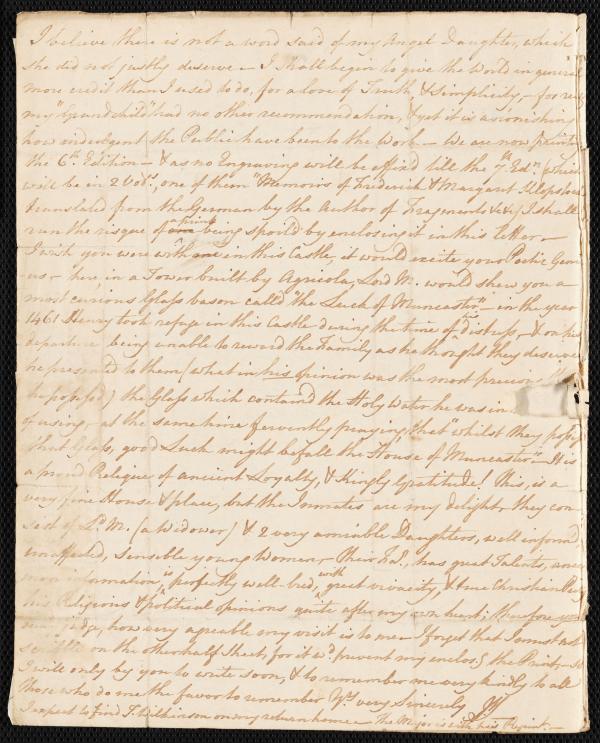 I believe there is not a word said of my Angel Daughter, which
she did not justly deserve - I shall begin to give the World in general
more credit than I used to do, for a love of Truth & Simplicity, - for
my "Grandchild" had no other recommendation, & yet it is astonishing
how indulgent the Public have been to the Work - We are now
the 6th. Edition - & as no Engraving will be affixd till the 7th Edn (which
will be in 2 Vols, one of them "Memoirs of Frederick & Margaret Klopstock
translated from the German by the Author of Fragments &c &c) I shall
run the risque of a print being spoild by enclosing it in this Letter -
I wish you were with me in this Castle, it would excite your Poetic Geni
-us - here, in a Tower built by Agricola, Lord M. would shew you a
most curious Glass bason called "the Luck of Muncaster" - in the year
1461 Henry took refuge in this Castle during the time of his distress, & on his
departure being unable to reward the Family as he thought they deserved
he presented to them (what in his opinion was the most precious
he possess'd) the Glass which containd the Holy Water he was in
of using, - at the same time fervently praying, that "whilst they possess
that Glass, good Luck might befall the House of Muncaster" - It is
a proud Relique of ancient Loyalty, & Kingly Gratitude! This, is a
very fine House & place, but the Inmates are my delight, they con
-sist of Ld. M. (a Widower) & 2 very amiable Daughters, well inform'd
unaffected, sensible young Women, - Their Fa. has great Talents,
more information, is perfectly well-bred, with great vivacity, & true Christian
his Religious & political opinions quite after my own heart; therefore you
judge, how very agreable my visit is to me - I forget that I must not
scribble on the other half Sheet, for it wd. prevent my enclosg the Print, - so
I will only beg you to write soon, & to remember me very kindly to all
those who do me the favor to remember Yrs. very Sincerely
I expect to find T. Wilkinson on my return home - The Major is with his Regimt. -